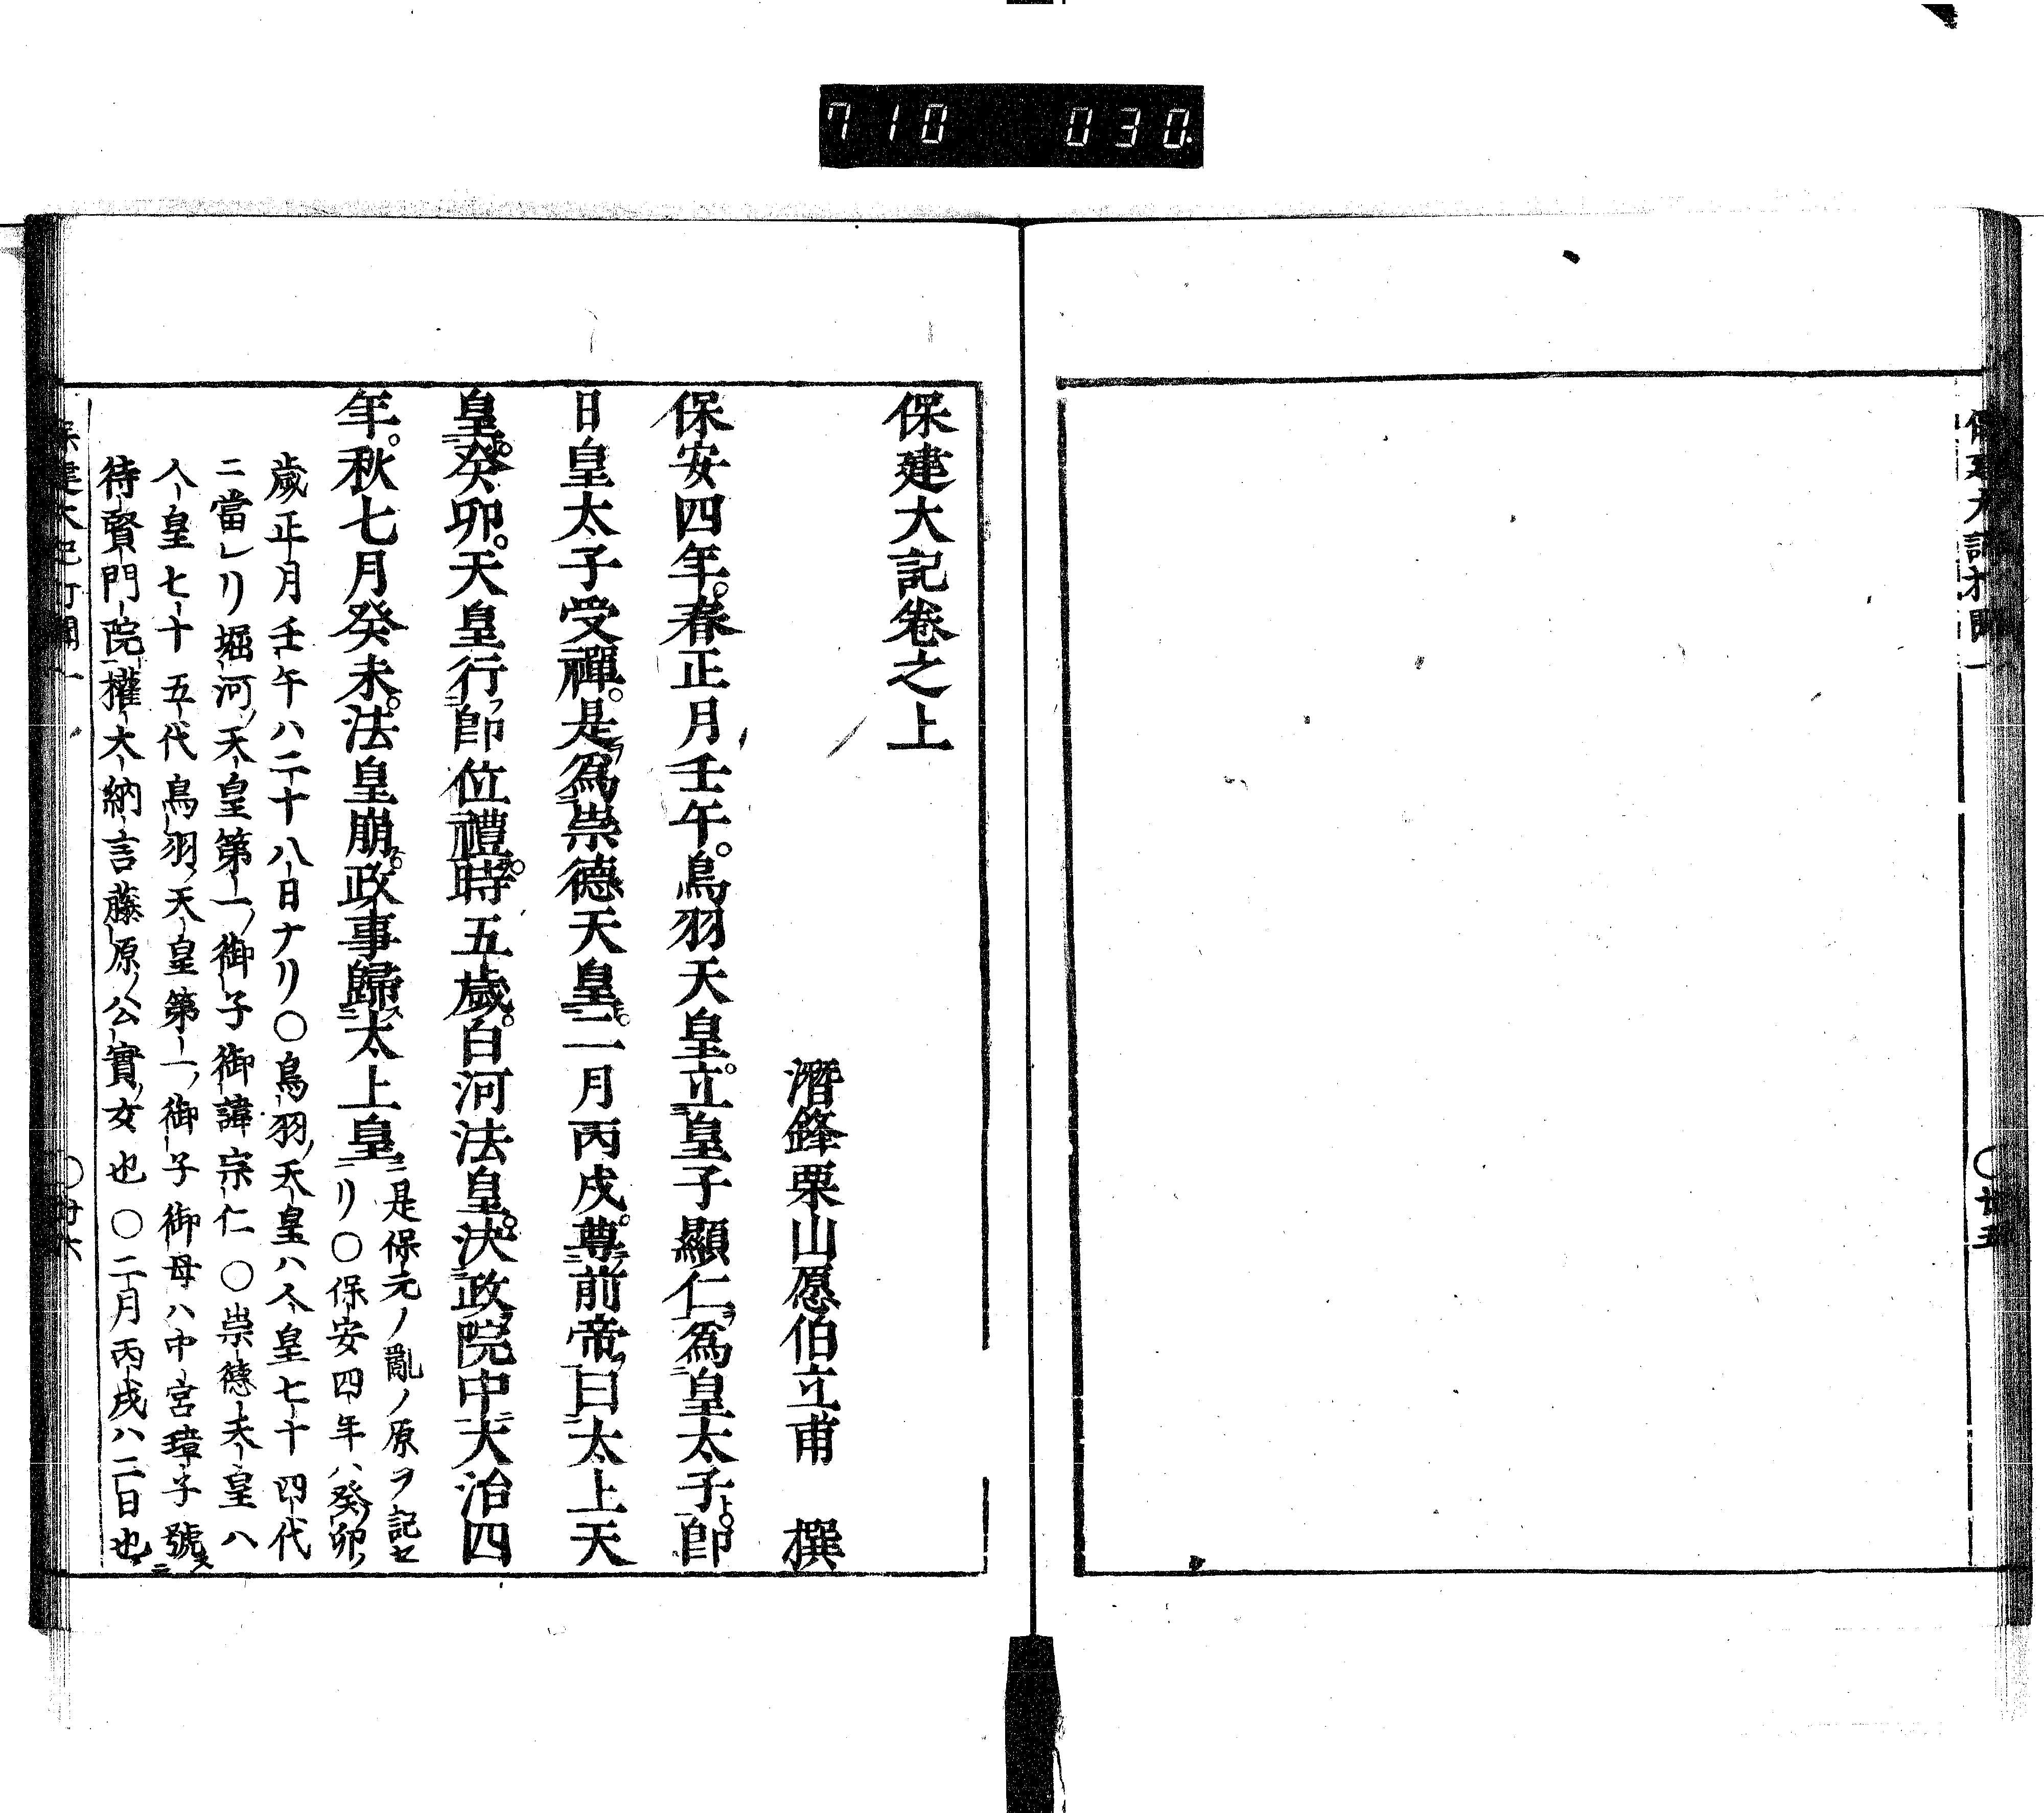 710 030
保建大記打聞一
〇廿五
保建大記卷之上
潛鋒栗山愿伯立甫 撰
保安四年。春正月壬午。鳥羽天皇。立皇子顯仁爲皇太子。卽
日皇太子受禪。是爲崇德天皇。二月丙戌。尊前帝曰太上天
皇。癸卯。天皇行卽位禮。時五歲。白河法皇。決政院中。大治四
年。秋七月癸未。法皇崩。政事歸太上皇
是保元ノ亂ノ原ヲ記セ
リ〇保安四年ハ癸卯ノ
歲正月壬午ハ二十八日ナリ〇鳥羽ノ天皇ハ人皇七十四代
ニ當レリ堀河ノ天皇第一ノ御子御諱宗仁〇崇德天皇ハ
人皇七十五代鳥羽ノ天皇第一ノ御子御母ハ中宮璋子號
待賢門院權大納言藤原ノ公實ノ女也〇二月丙戌ハ二日也
保建大記打聞一
〇廿六